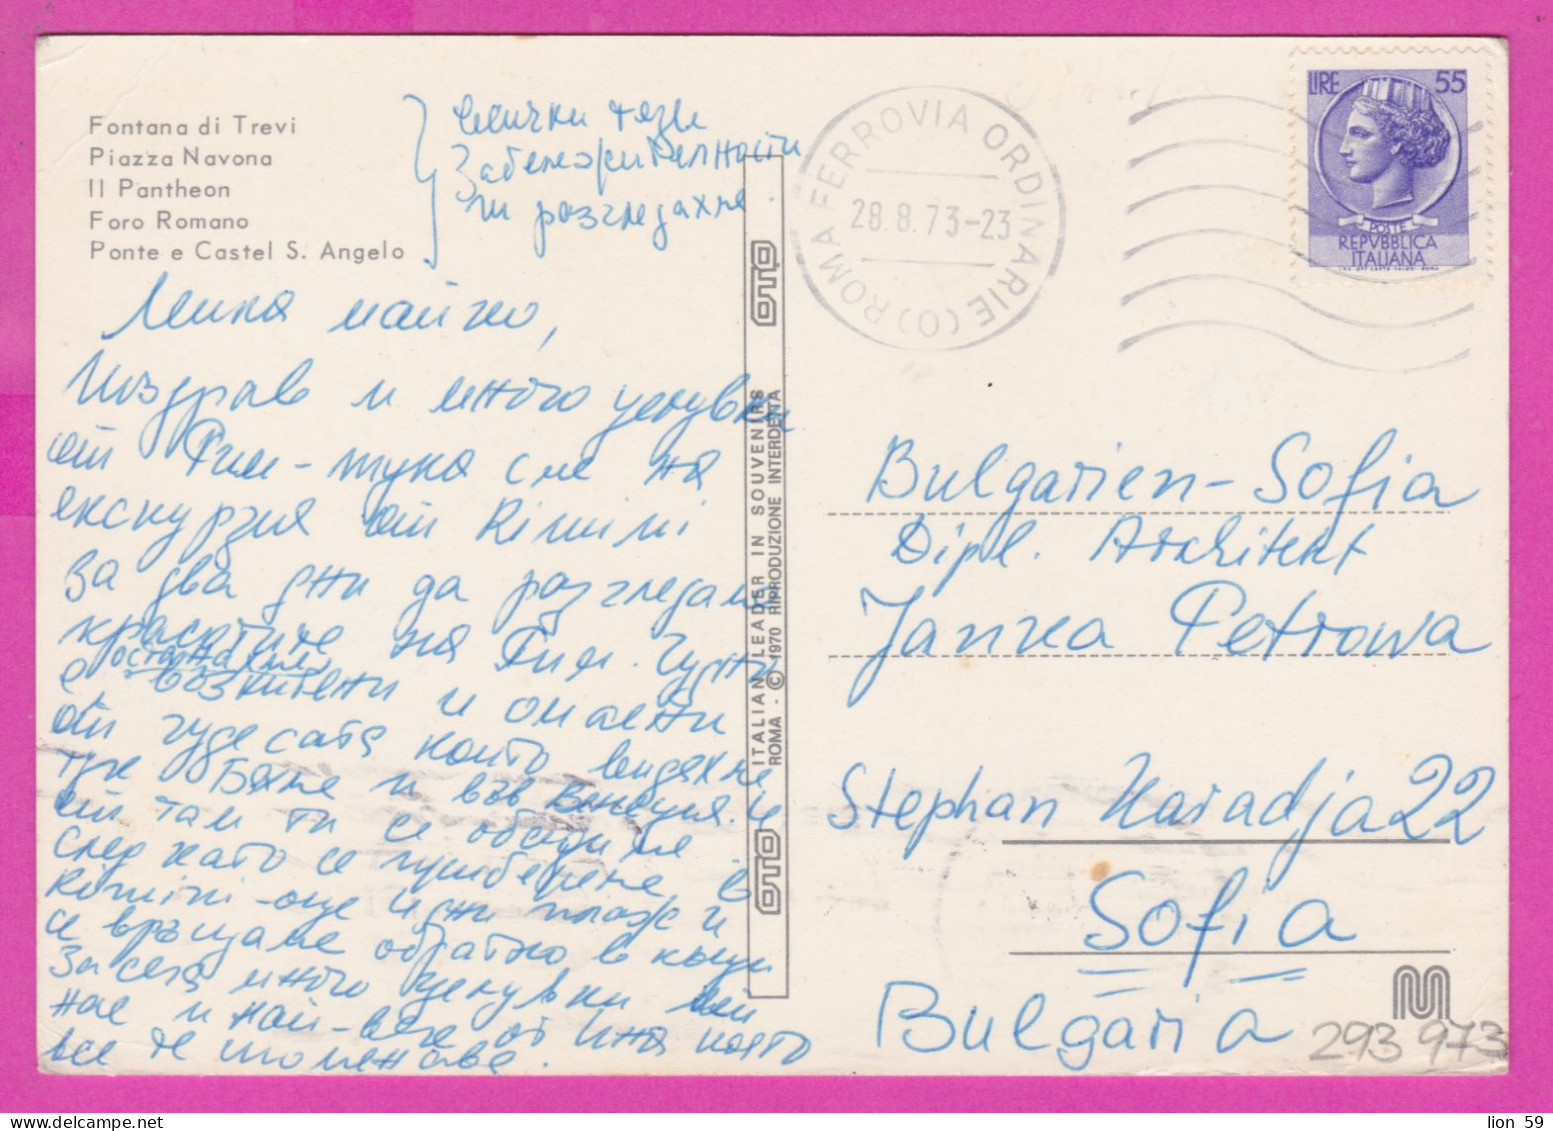 Fontana di Trevi
Piazza Navona
Il Pantheon
Foro Romano
Ponte e Castel S. Angelo
Всички тези
забележителности
ги разгледахме.
Мила майчо,
Поздрав и много целувки
от Рим - тука сме на
екскурзия от Rimini
за два дни да разгледаме
красотите на Рим. Чудни
останахме
възхитени и
от чудесата които видяхме
тук. Бяхме и във Венеция. И
от там ти се обадихме
след като се приберем в
Rimini - още дни плаж и
се връщаме обратно в къщи
За сега много целувки от
нас и най-вече от която
все те споменава.
ITALIAN LEADER IN SOUVENIRS
ROMA - © 1970 RIPRODUZIONE INTERDETTA
OTO
OTO
ROMA FERROVIA ORDINARIE (O)
28.8.73-23
LIRE 55
POSTE
REPVBBLICA
ITALIANA
Bulgarien - Sofia
Dipl. Architekt
Janka Petrowa
Stephan Karadja 22
Sofia
Bulgaria
293 973
lion 59